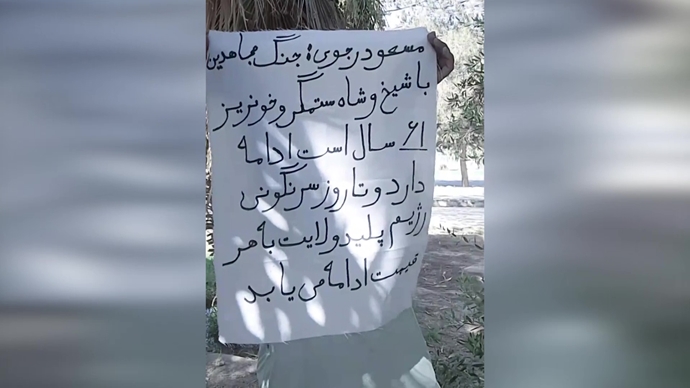 مسعود رجوی: جنگ مجاهدین
با شیخ و شاه ستمگر و خونریز
۶۱ سال است ادامه
دارد و تا روز سرنگونی
رژیم پلید ولایت به هر
قیمت ادامه می یابد